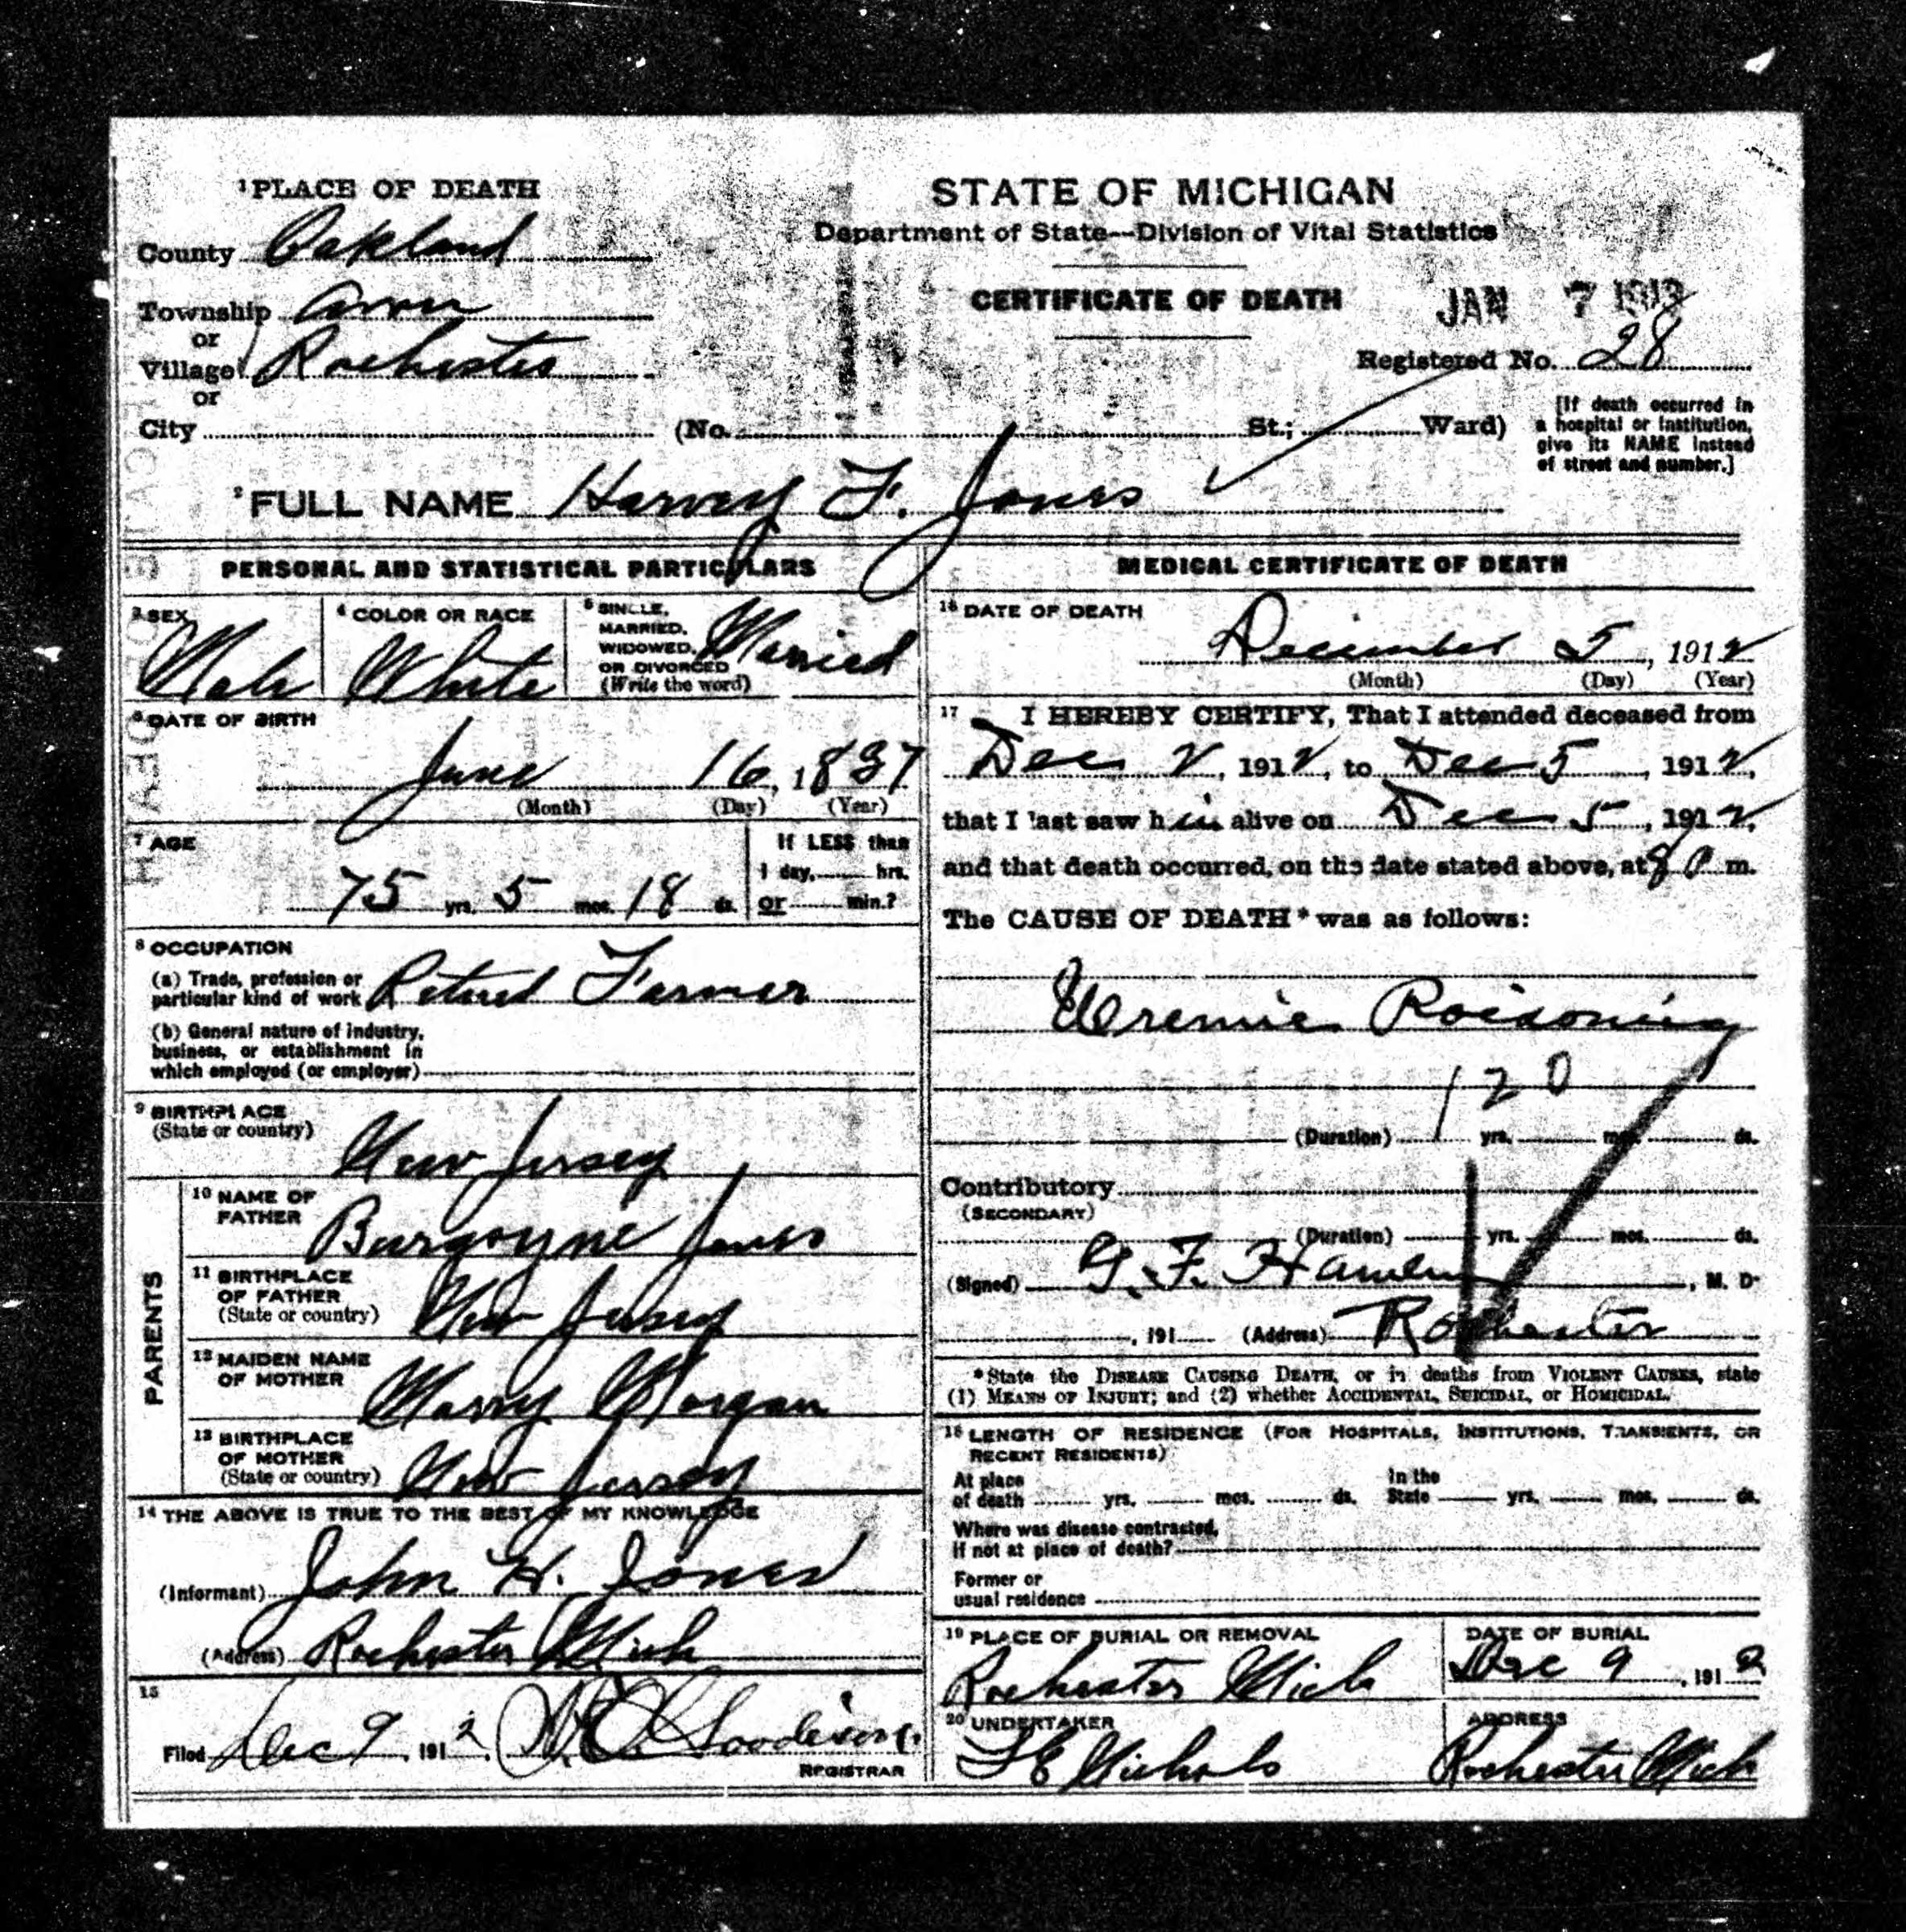 1 PLACE OF DEATH
County Oakland
Township Avon
or
Village Rochester
or
City (No. St.; Ward)
STATE OF MICHIGAN
Department of State—Division of Vital Statistics
CERTIFICATE OF DEATH
JAN 7 1913
Registered No. 28
[If death occurred in
a hospital or institution,
give its NAME instead
of street and number.]
2 FULL NAME Harvey F. Jones
PERSONAL AND STATISTICAL PARTICULARS
3 SEX
Male
4 COLOR OR RACE
White
5 SINGLE,
MARRIED,
WIDOWED,
OR DIVORCED
(Write the word)
Married
6 DATE OF BIRTH
June 16, 1837
(Month) (Day) (Year)
7 AGE
75 yrs. 5 mos. 18 ds.
If LESS than
1 day, hrs.
or min.?
8 OCCUPATION
(a) Trade, profession or
particular kind of work Retired Farmer
(b) General nature of industry,
business, or establishment in
which employed (or employer)
9 BIRTHPLACE
(State or country)
New Jersey
PARENTS
10 NAME OF
FATHER
Burgoyne Jones
11 BIRTHPLACE
OF FATHER
(State or country)
New Jersey
12 MAIDEN NAME
OF MOTHER
Marry Morgan
13 BIRTHPLACE
OF MOTHER
(State or country)
New Jersey
14 THE ABOVE IS TRUE TO THE BEST OF MY KNOWLEDGE
(Informant) John H. Jones
(Address) Rochester Mich
15
Filed Dec 9, 1912.
REGISTRAR
MEDICAL CERTIFICATE OF DEATH
16 DATE OF DEATH
December 5, 1912
(Month) (Day) (Year)
17 I HEREBY CERTIFY, That I attended deceased from
Dec 2, 1912, to Dec 5, 1912,
that I last saw him alive on Dec 5, 1912,
and that death occurred, on the date stated above, at 8 P m.
The CAUSE OF DEATH* was as follows:
Uremic Poisoning
120
(Duration) yrs. mos. ds.
Contributory
(SECONDARY)
(Duration) yrs. mos. ds.
(Signed) G. F. , M. D.
, 191 (Address) Rochester
*State the DISEASE CAUSING DEATH, or in deaths from VIOLENT CAUSES, state
(1) MEANS OF INJURY; and (2) whether ACCIDENTAL, SUICIDAL, or HOMICIDAL.
18 LENGTH OF RESIDENCE (FOR HOSPITALS, INSTITUTIONS, TRANSIENTS, OR
RECENT RESIDENTS)
At place
of death yrs. mos. ds.
In the
State yrs. mos. ds.
Where was disease contracted,
if not at place of death?
Former or
usual residence
19 PLACE OF BURIAL OR REMOVAL
Rochester Mich
DATE OF BURIAL
Dec 9, 1912
20 UNDERTAKER
Nichols
ADDRESS
Rochester Mich